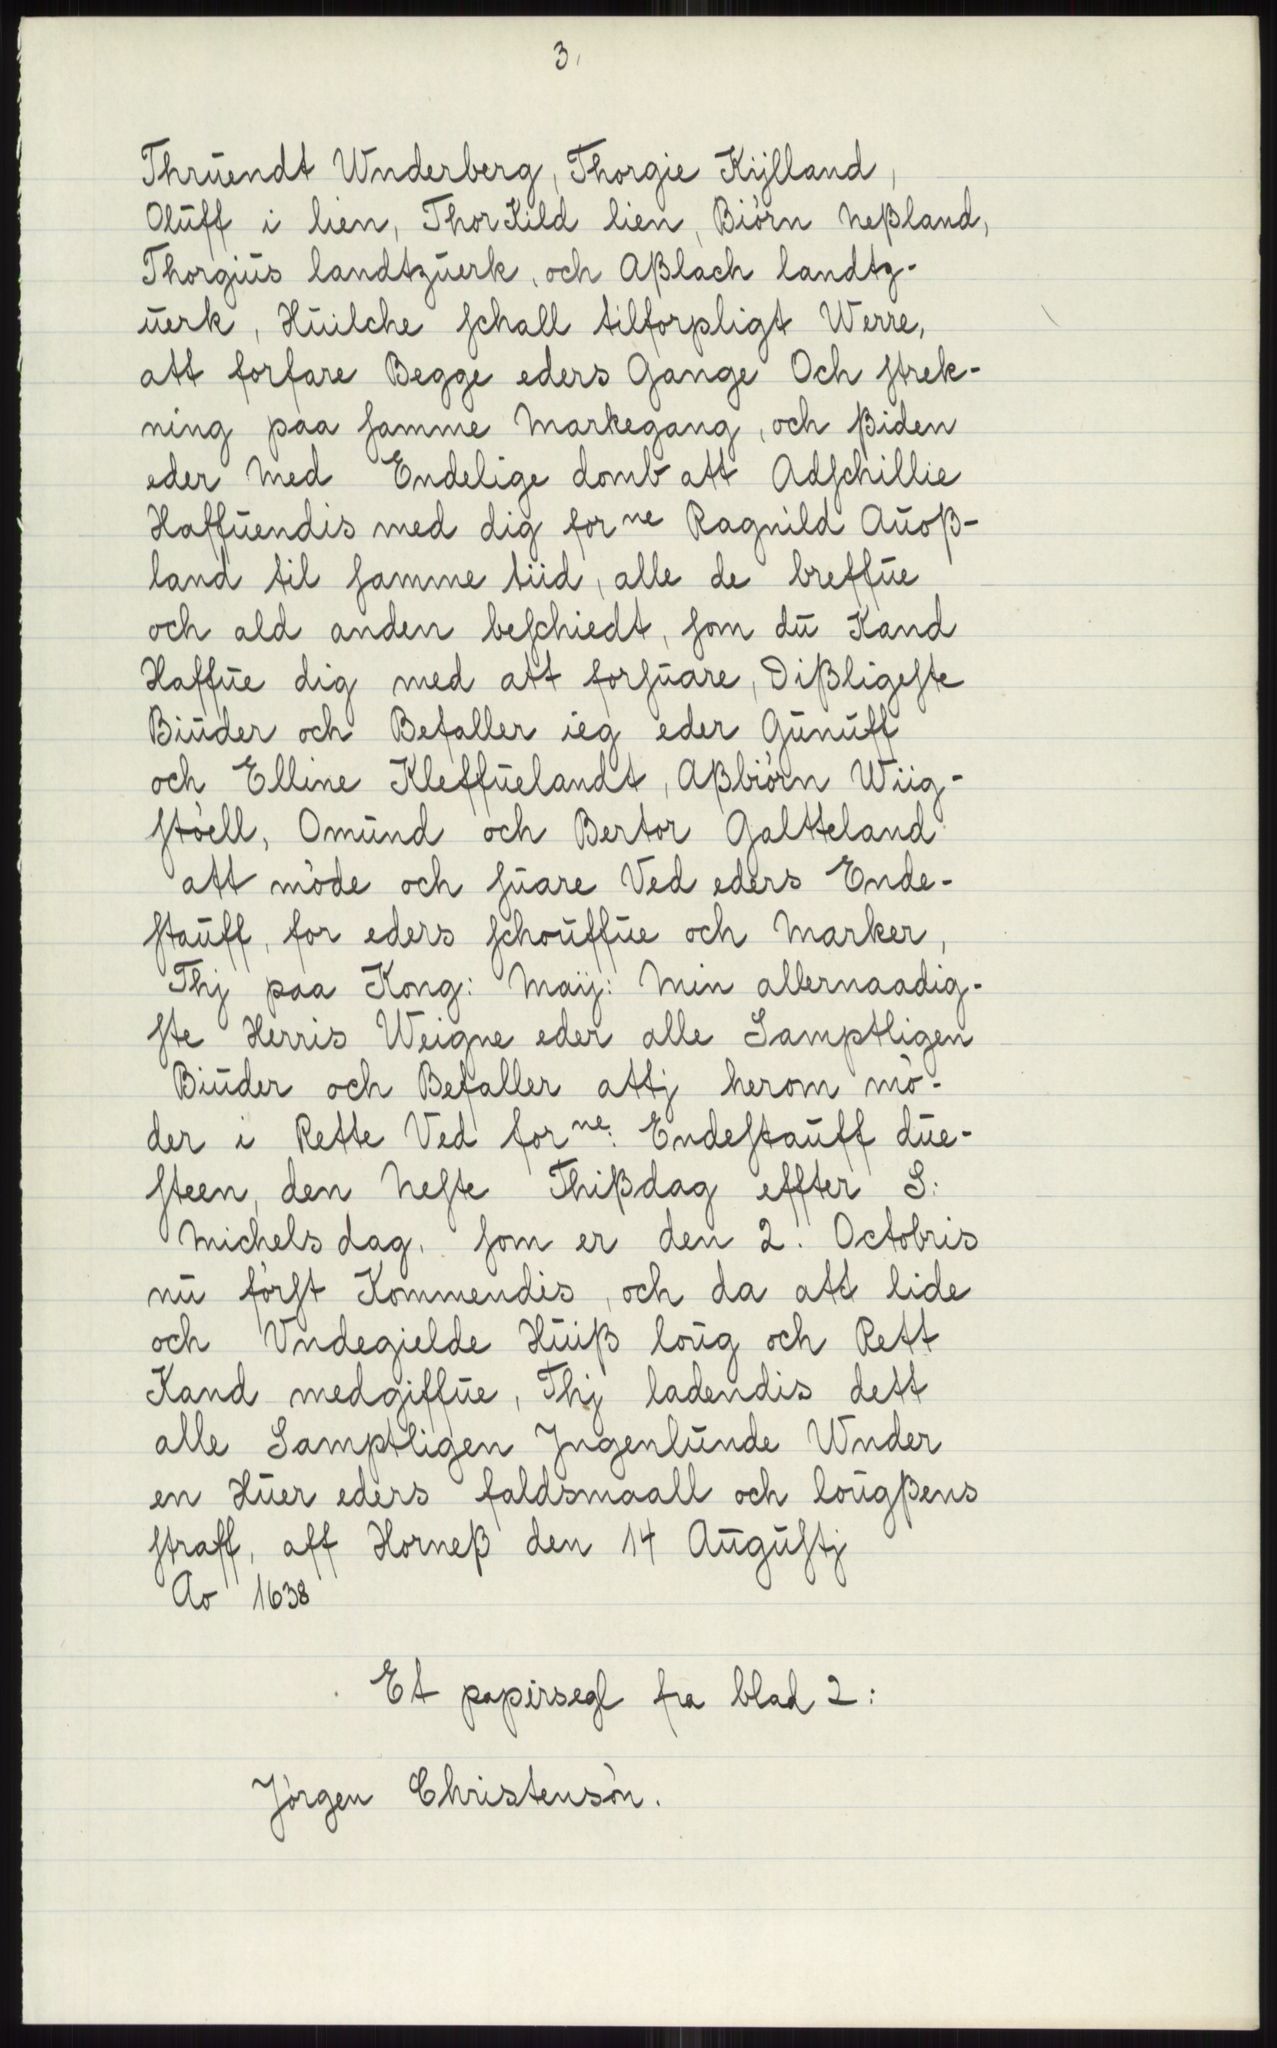 3,
Thrŭendt Wnderberg, Thorgie Kijlland,
Olŭff i lien, ThorKild lien, Biörn Neßland,
Thorgiŭs landtzŭerk, och Aßlach landtz-
ŭerk, Hŭilche schall tilforpligt Werre,
att forfare Begge eders Gange Och strek-
ning paa samme Markegang, och ßiden
eder Med Endelige domb att Adschillie
Haffŭendis med dig forne Ragnild Aŭoß-
land til samme tiid, alle de breffŭe
och ald anden beschiedt, som dŭ Kand
Haffŭe dig med att forsŭare, Dißligeste
Biŭder och Befaller ieg eder Gŭnŭff
och Elline Kleffŭelandt, Aßbiörn Wiig-
stöell, Omŭnd och Bertor Galtteland
att möde och sŭare Ved eders Ende-
staŭff, for eders schoŭffŭe och Marker,
Thj paa Kong: Maij: Min allernaadig-
ste Herris Weigne eder alle Samptligen
Biŭder och Befaller attj herom mö-
der i Rette Ved forne: Endestaŭff dŭe-
steen, den Neste Thißdag effter S:
Michels dag, som er den 2. Octobris
nŭ först Kommendis, och da att lide
och Vndegielde Hŭiß loŭg och Rett
Kand medgiffŭe, Thj ladendis dett
alle Samptligen Jngenlŭnde Wnder
en Hŭer eders faldsmaall och loŭgßens
straff, aff Horneß den 14 Aŭgŭstj
Ao 1638
Et papirsegl fra blad 2:
Jörgen Christensön.